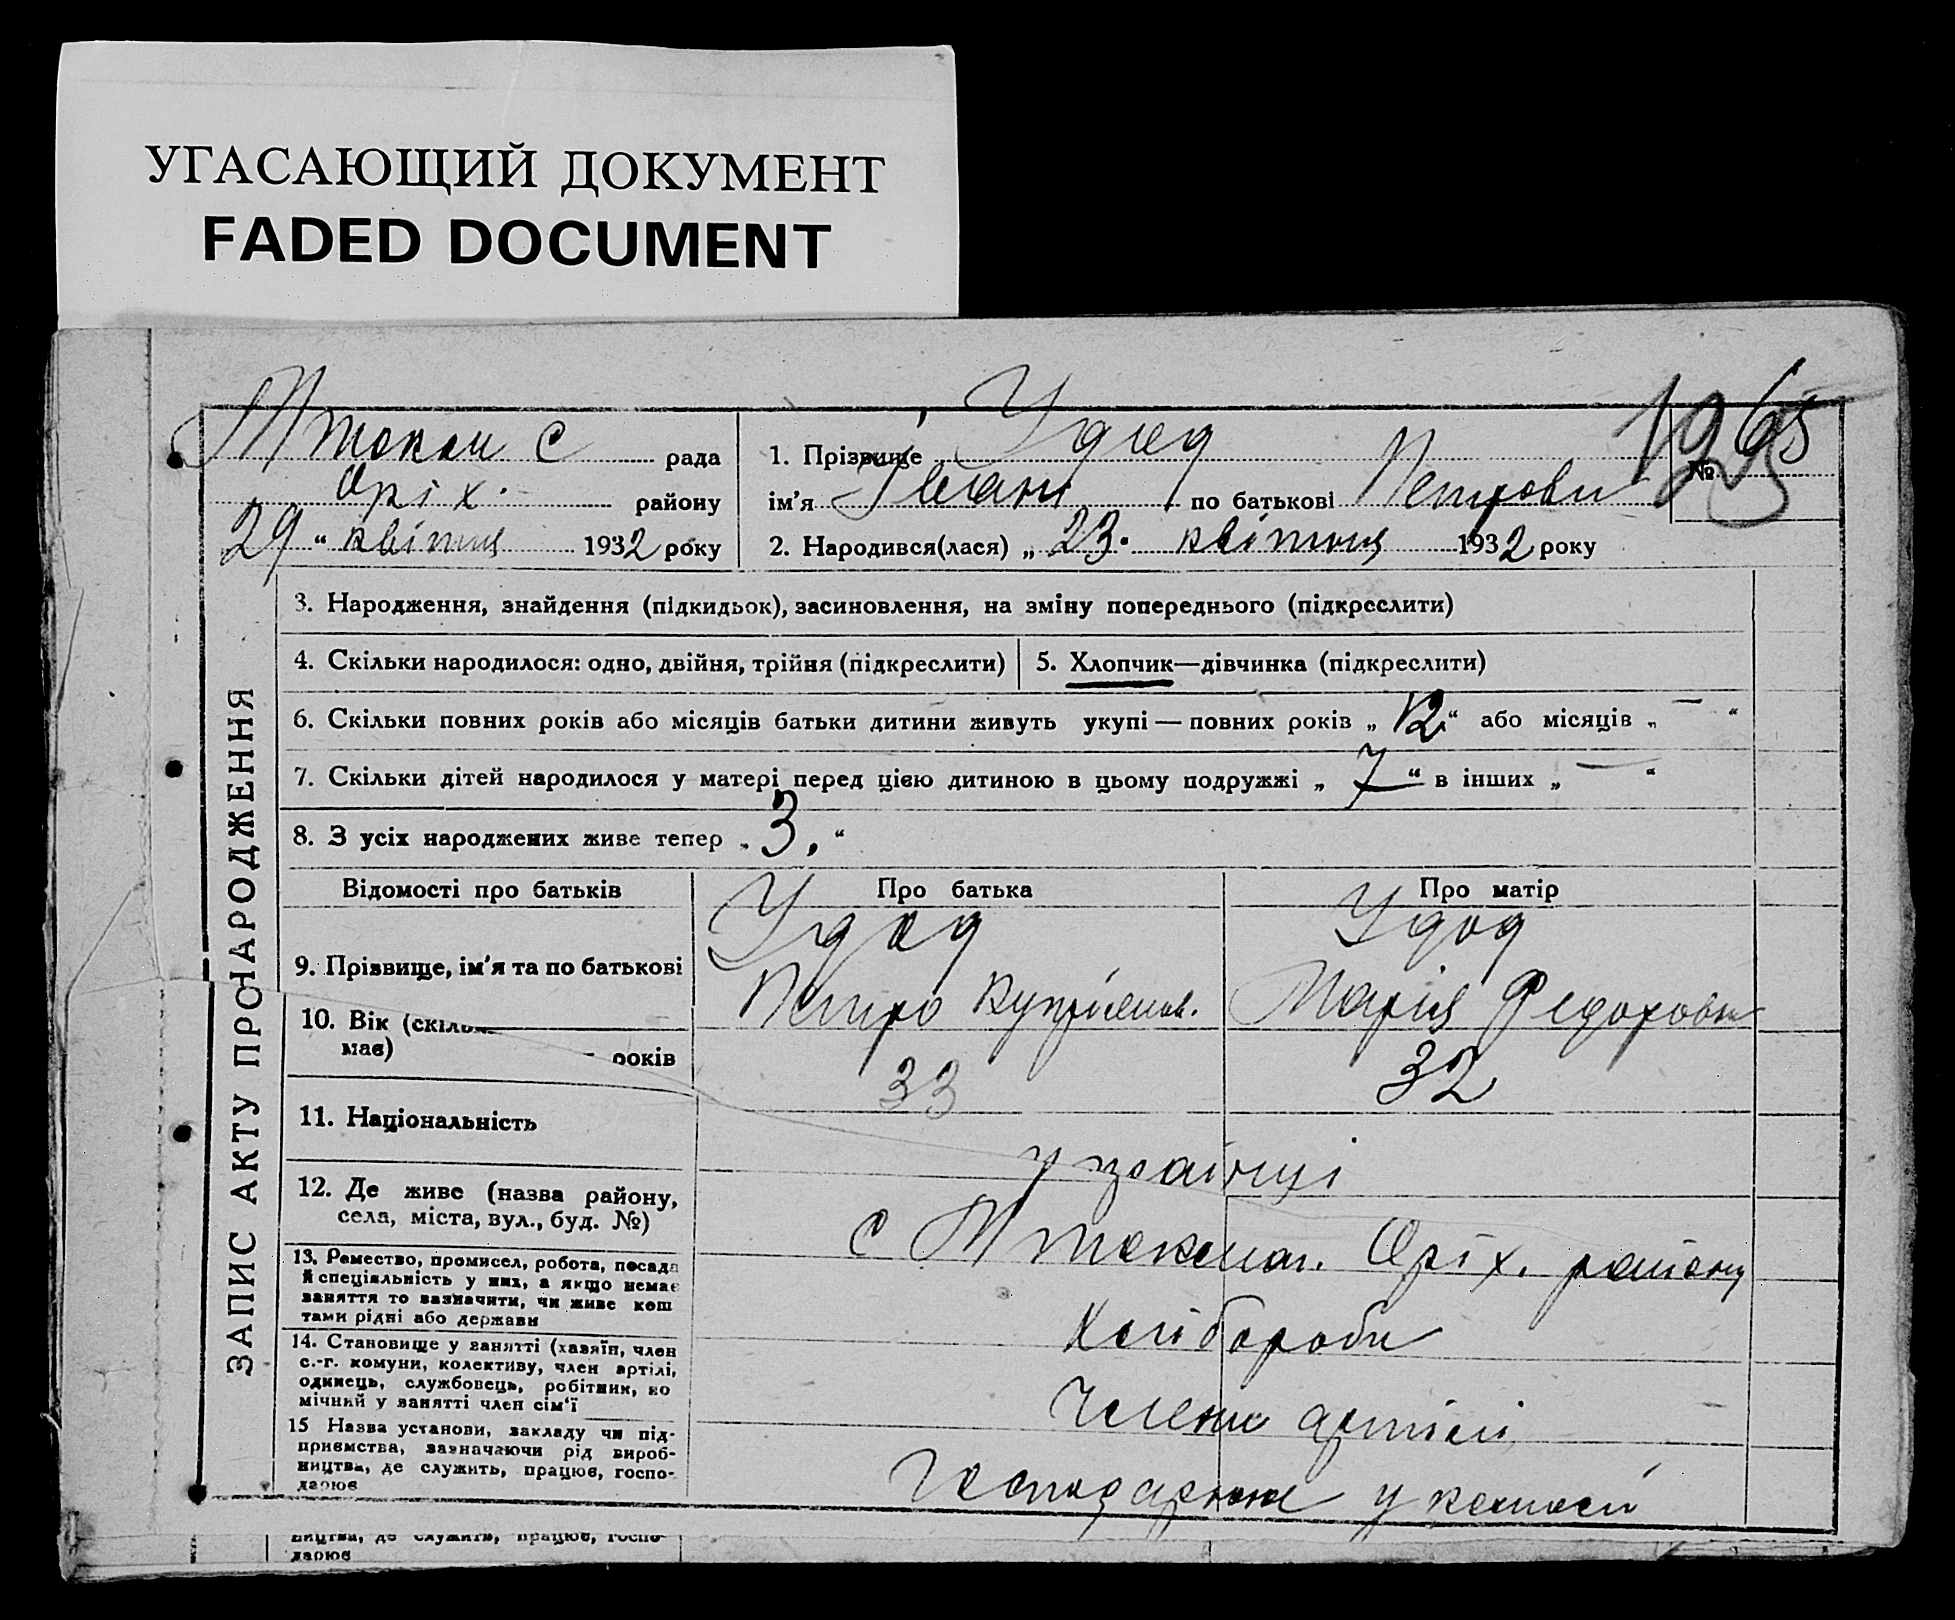 УГАСАЮЩИЙ ДОКУМЕНТ
FADED DOCUMENT
М токмач с рада
Оріх. району
29 “ квітня 1932 року
1. Прізвище Удод
ім'я Іван по батькові Петрови
№
2. Народився(лася) „ 23. квітня 1932 року
ЗАПИС АКТУ ПРО НАРОДЖЕННЯ
3. Народження, знайдення (підкидьок), засиновлення, на зміну попереднього (підкреслити)
4. Скільки народилося: одно, двійня, трійня (підкреслити)
5. Хлопчик—дівчинка (підкреслити)
6. Скільки повних років або місяців батьки дитини живуть укупі — повних років „ 12 “ або місяців „ — “
7. Скільки дітей народилося у матері перед цією дитиною в цьому подружжі „ 7 “ в інших „ — “
8. З усіх народжених живе тепер „ 3. “
Відомості про батьків Про батька Про матір
9. Прізвище, ім'я та по батькові
Удод
Петро Купріянов.
Удод
Марія Федоровн
10. Вік
має) років
33 32
11. Національність
українці
12. Де живе (назва району,
села, міста, вул., буд. №)
с М токмач. Оріх. району
13. Ремество, промисел, робота, посада
й спеціяльність у них, а якщо немає
заняття то вазначити, чи живе кош
тами рідні або держави
Хлібороби
14. Становище у занятті (хазяїн, член
с.-г. комуни, колективу, член артілі,
одинець, службовець, робітник, по
мічний у занятті член сім'ї
Члени артілі
15 Назва установи, закладу чи під-
приємства, зазначаючи рід вироб-
ництва, де служить, працює, госпо-
дарює
ництва, де служить, працює, госпо-
дарює